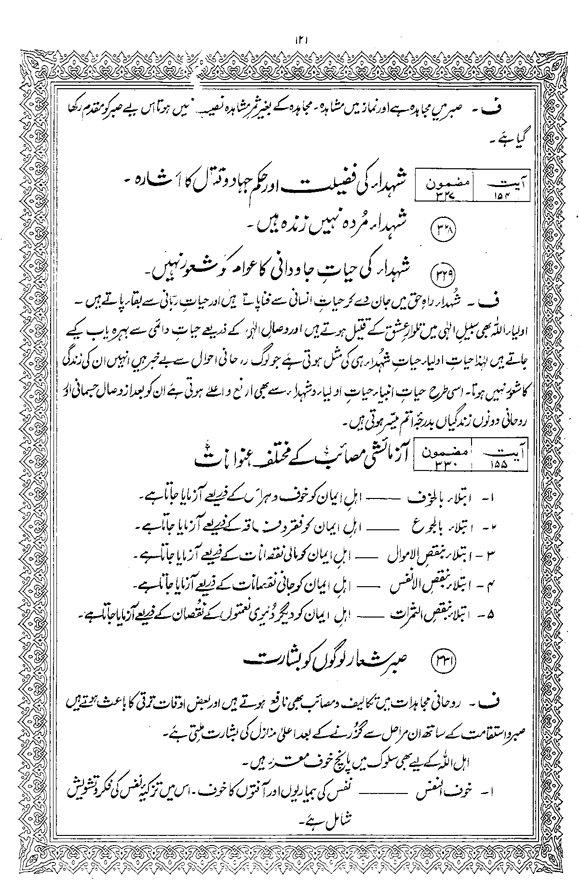 ۱۲۱
ف - صبر میں مجاہدہ ہے اور نماز میں مشاہدہ - مجاہدہ کے بغیر ثمرِ مشاہدہ نصیب نہیں ہوتا اس لیے صبر کو مقدم رکھا
گیا ہے -
آیت ۱۵۴ مضمون ۳۲۷ شہداء کی فضیلت اور حکم جہاد و قتال کا اشارہ -
۳۲۸ شہداء مُردہ نہیں زندہ ہیں -
۳۲۹ شہداء کی حیاتِ جاودانی کا عوام کو شعور نہیں -
ف - شہداء راہِ حق میں جان دے کر حیاتِ انسانی سے فنا پاتے ہیں اور حیاتِ ربانی سے بقا پاتے ہیں -
اولیاء اللہ بھی سبیل الٰہی میں تلوارِ عشق کے قتیل ہوتے ہیں اور وصال الٰہی کے ذریعے حیاتِ دائمی سے بہرہ یاب کیے
جاتے ہیں لہٰذا حیاتِ اولیاء حیاتِ شہداء ہی کی مثل ہوتی ہے جو لوگ روحانی احوال سے بے خبر ہیں انہیں ان کی زندگی
کا شعور نہیں ہوتا - اسی طرح حیاتِ انبیاء حیاتِ اولیاء و شہداء سے بھی ارفع و اعلے ہوتی ہے ان کو بعد از وصال جسمانی اور
روحانی دونوں زندگیاں بدرجۂ اتم میسر ہوتی ہیں -
آیت ۱۵۵ مضمون ۳۳۰ آزمائشی مصائب کے مختلف عنوانات
۱- ابتلاء بالخوف —— اہلِ ایمان کو خوف و ہراس کے ذریعے آزمایا جاتا ہے -
۲- ابتلاء بالجوع —— اہلِ ایمان کو فقر و فاقہ کے ذریعے آزمایا جاتا ہے -
۳- ابتلاء بنقص الاموال —— اہلِ ایمان کو مالی نقصانات کے ذریعے آزمایا جاتا ہے -
۴- ابتلاء بنقص الانفس —— اہلِ ایمان کو جانی نقصانات کے ذریعے آزمایا جاتا ہے -
۵- ابتلاء بنقص الثمرات —— اہلِ ایمان کو دیگر دُنیوی نعمتوں کے نقصان کے ذریعے آزمایا جاتا ہے -
۳۳۱ صبر شعار لوگوں کو بشارت
ف - روحانی مجاہدات میں تکالیف و مصائب بھی نافع ہوتے ہیں اور بعض اوقات ترقی کا باعث ہوتے ہیں
صبر و استقامت کے ساتھ ان مراحل سے گزرنے کے بعد اعلیٰ منازل کی بشارت ملتی ہے -
اہل اللہ کے لیے بھی سلوک میں پانچ خوف مقرر ہیں -
۱- خوف النفس —— نفس کی بیماریوں اور آفتوں کا خوف - اس میں تزکیۂ نفس کی فکر و تشویش
شامل ہے -